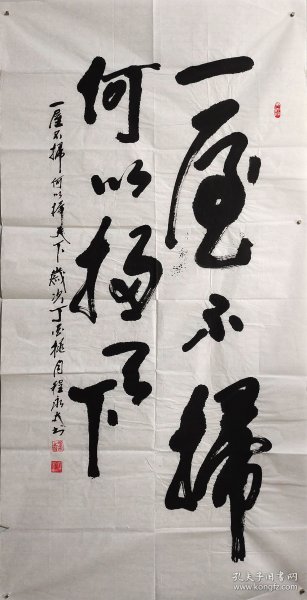 一屋不掃
何以掃天下
一屋不掃何以掃天下歲次丁酉桃月程永
孔夫子旧书网